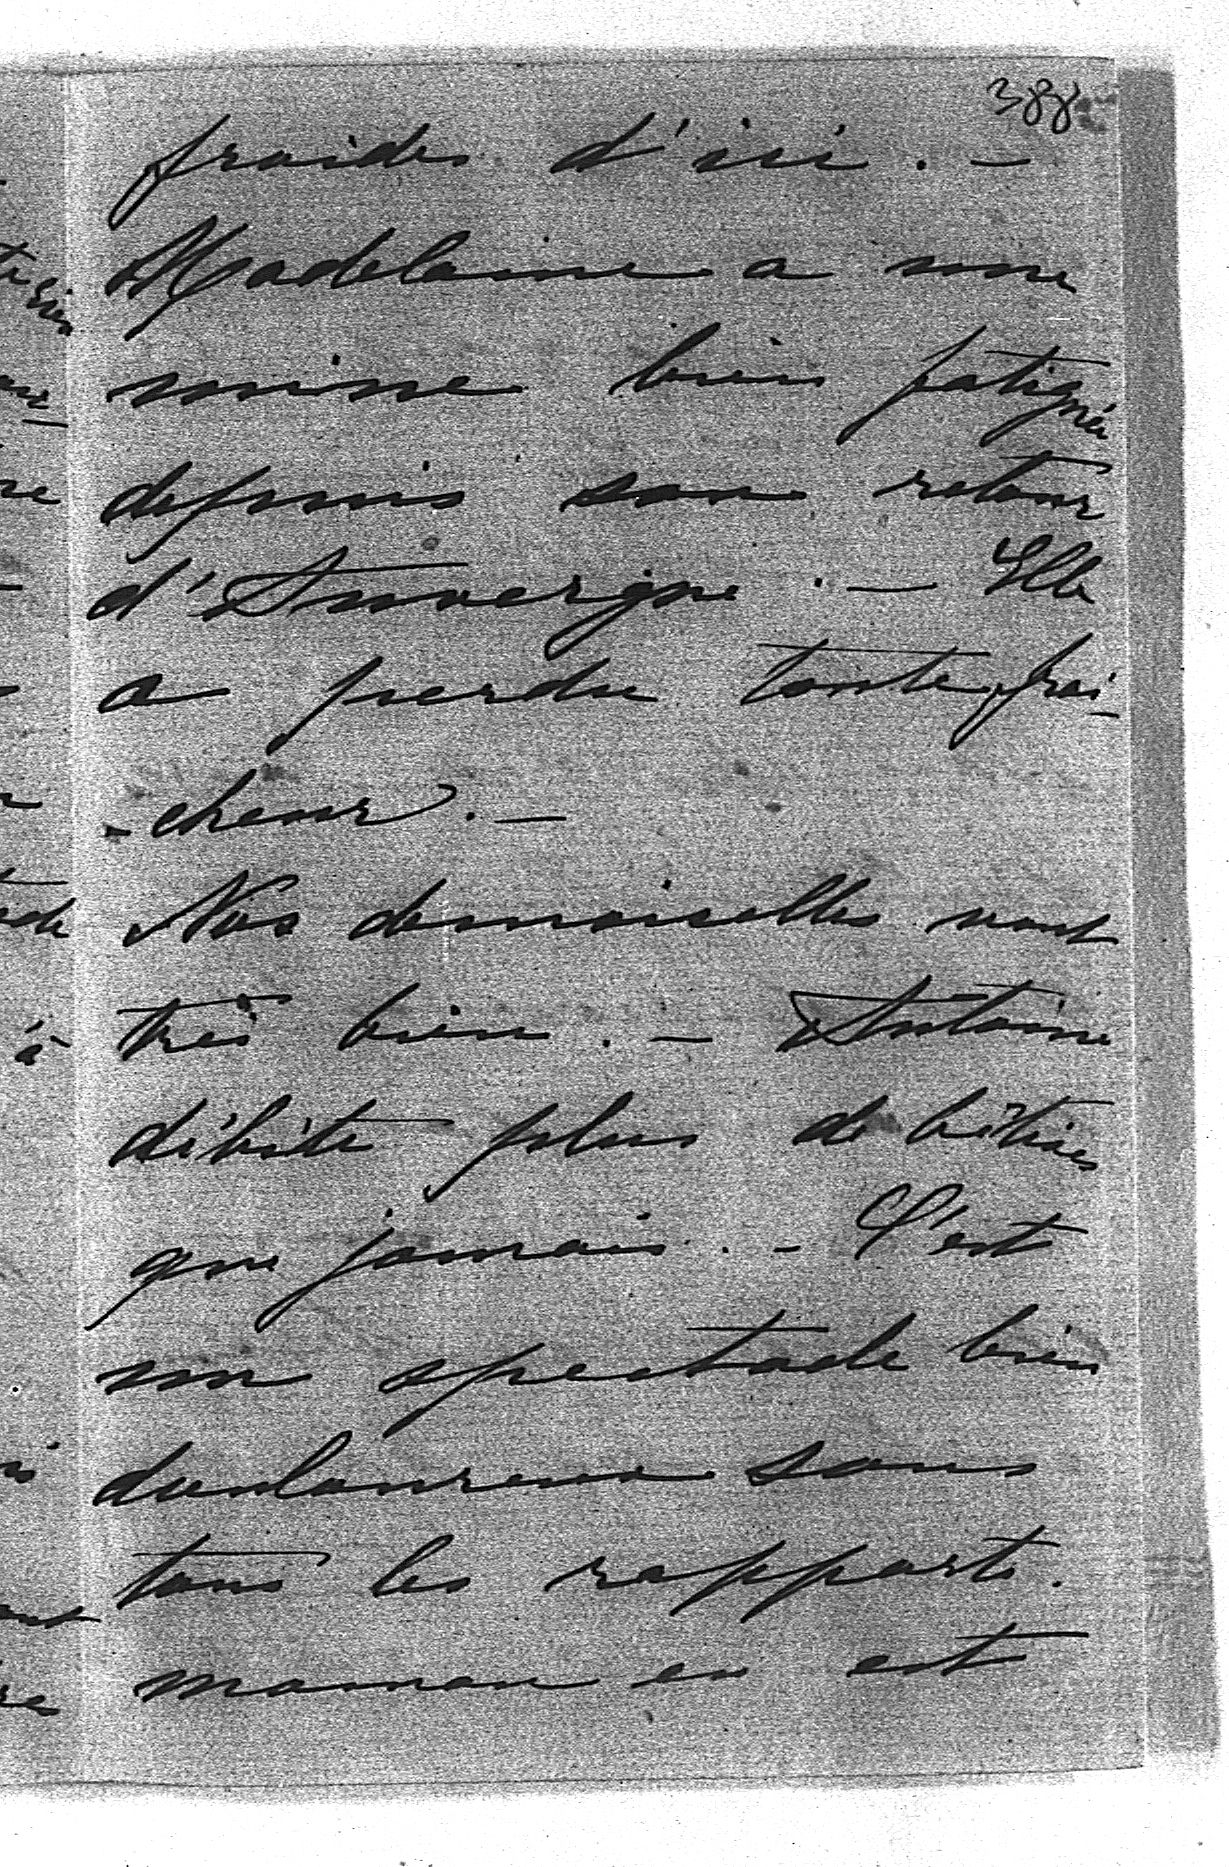 388
froides d'ici. —
Madelaine a une
mine bien fatiguée
depuis son retour
d'Auvergne. — Elle
a perdu toute frai-
-cheur. —
Nos demoiselles vont
très bien. — Antoine
débite plus de bêtises
que jamais. — C'est
un spectacle bien
douloureux sous
tous les rapports.
maman en est